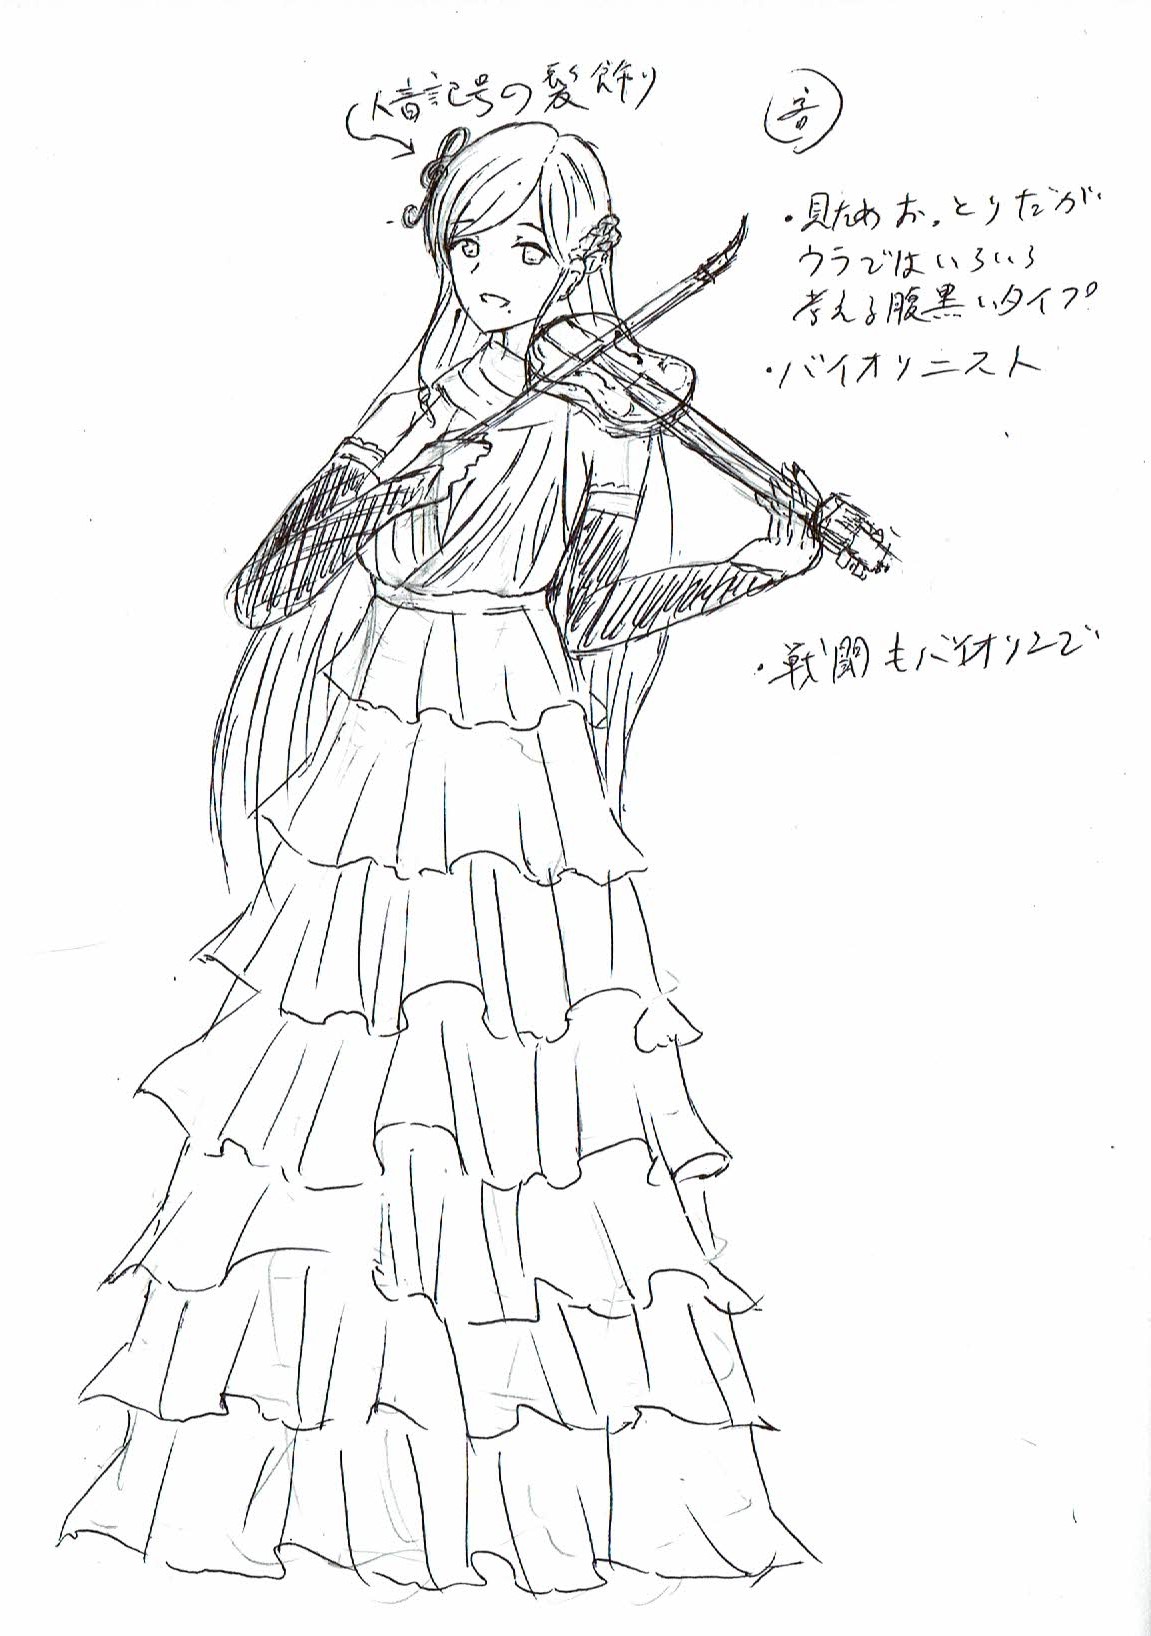 音記号の髪飾り
音
・見ためおっとりだが
ウラではいろいろ
考える腹黒いタイプ
・バイオリニスト
・戦闘もバイオリンで